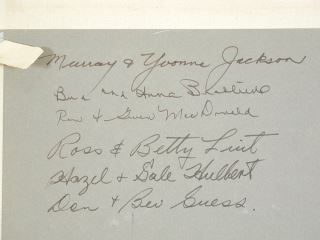 Murray & Yvonne Jackson
and Anna
& Gwen MacDonald
Ross & Betty Lint
Hazel + Dale Hulbert
Don + Bev Guess.